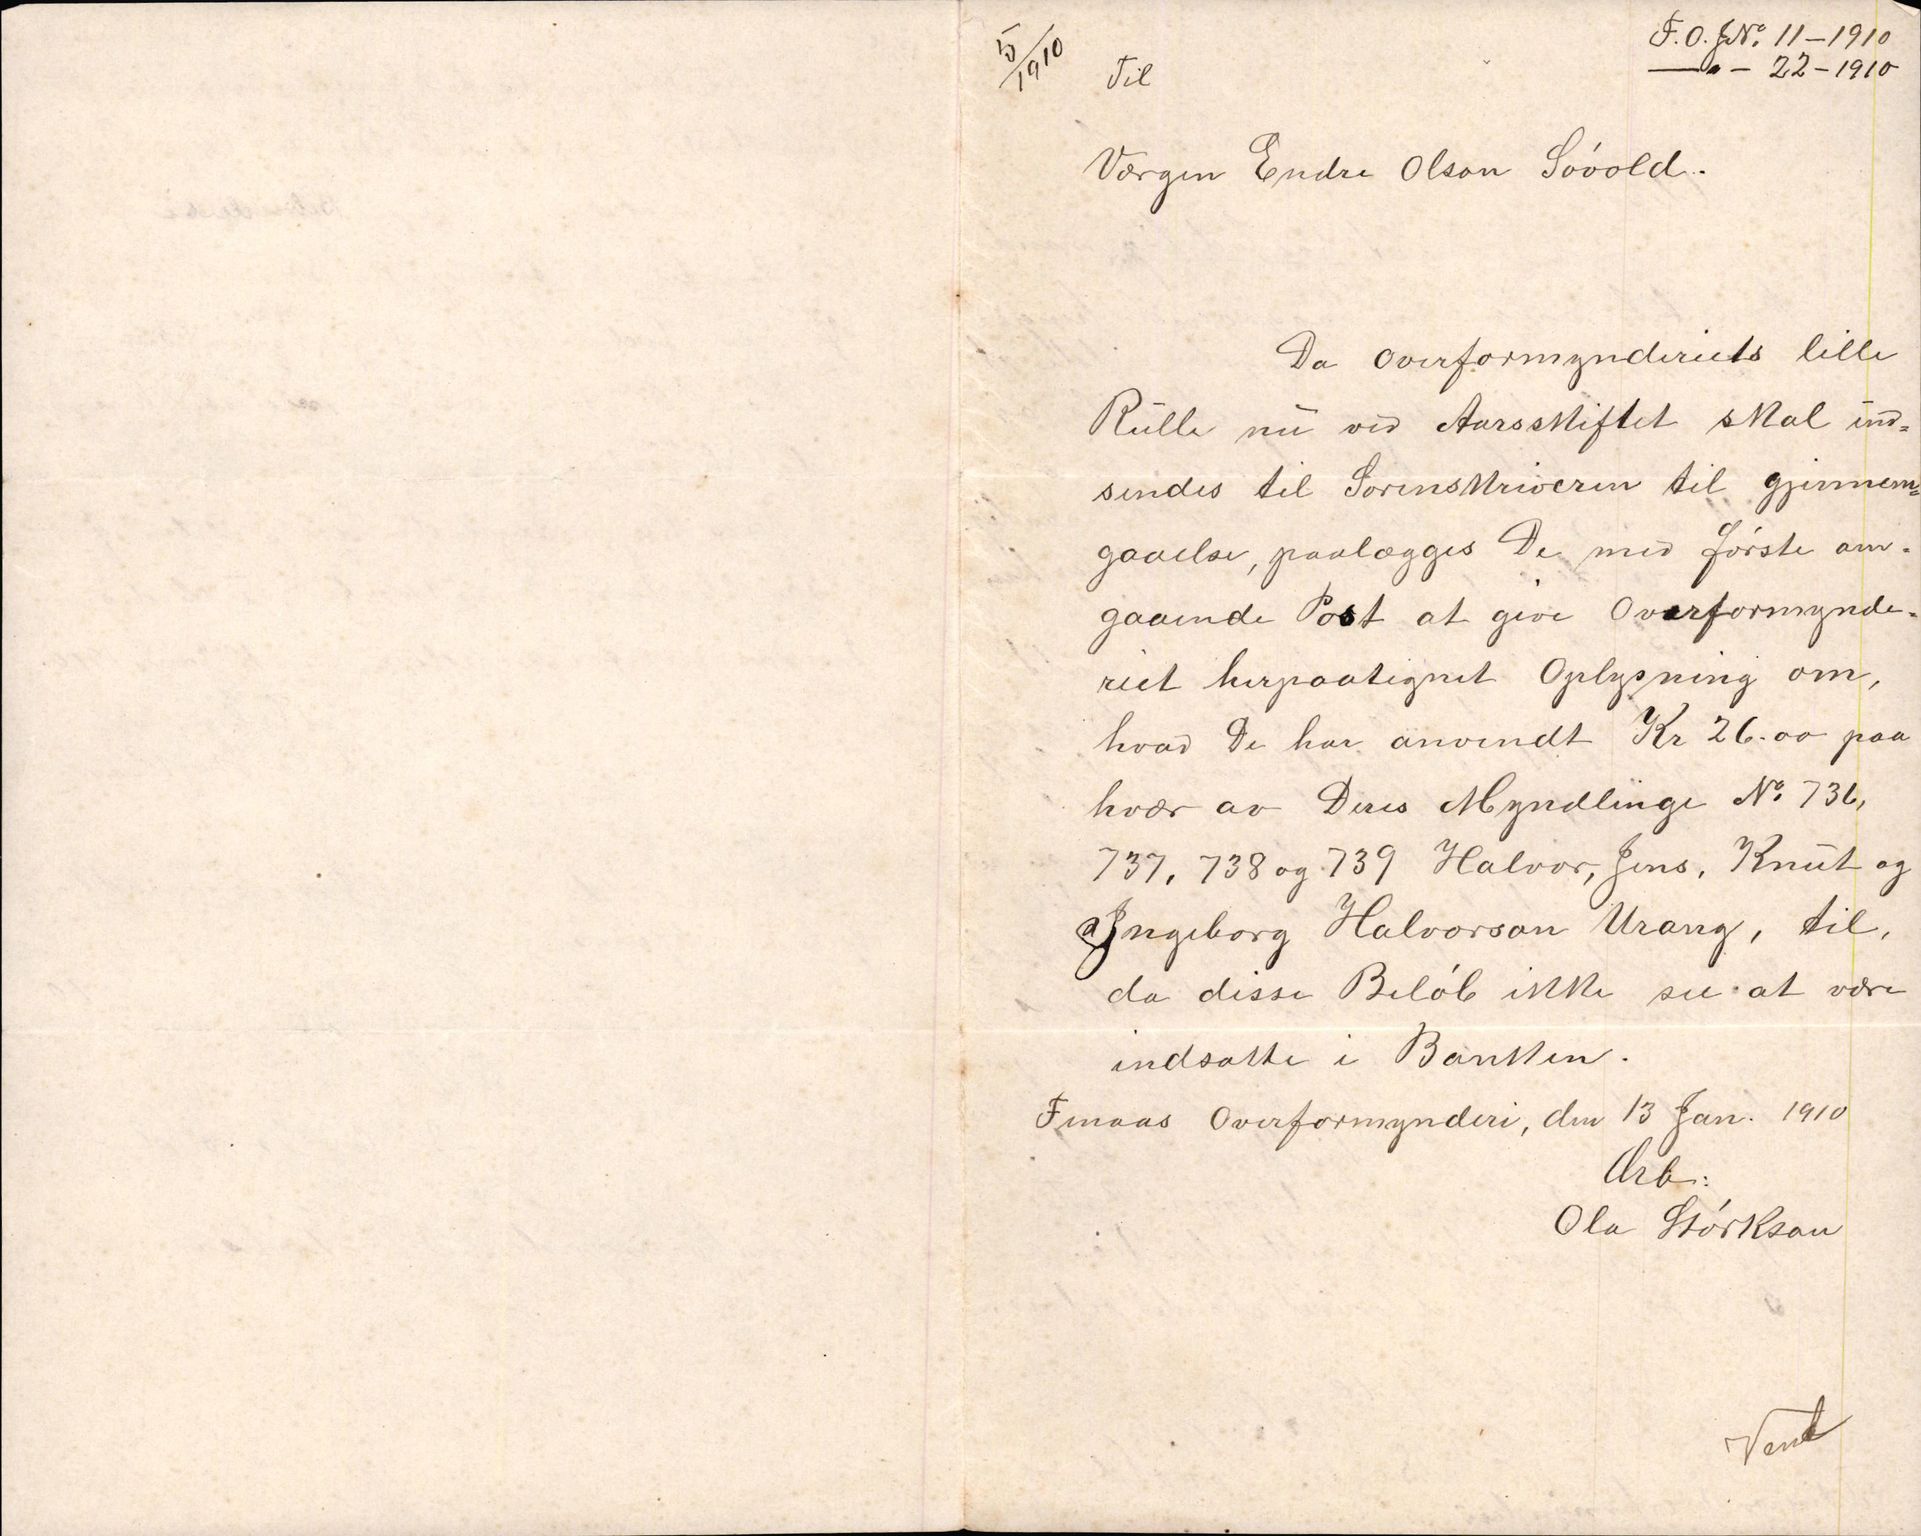 5/1910
F. O. J.No. 11-1910
—"— 22-1910
Til
Værgen Endre Olson Sóvold.
Da Overformynderiets lille
Rülle nü ved Aarsskiftet skal ind=
sendes til Sorenskriveren til gjennem=
gaaelse, paalægges De med første om-
gaaende Post at give Overformynde-
riet herpaategnet Oplysning om,
hvad De har anvendt Kr 26.00 paa
hvær av Deres Myndlinge No. 736,
737, 738 og 739 Halvor, Jens, Knüt og
Ingeborg Halvorson Urang, til,
da disse Beløb ikke see at være
indsatte i Banken.
Finaas Overformynderi, den 13 Jan. 1910
Ærb:
Ola Størkson
Vend